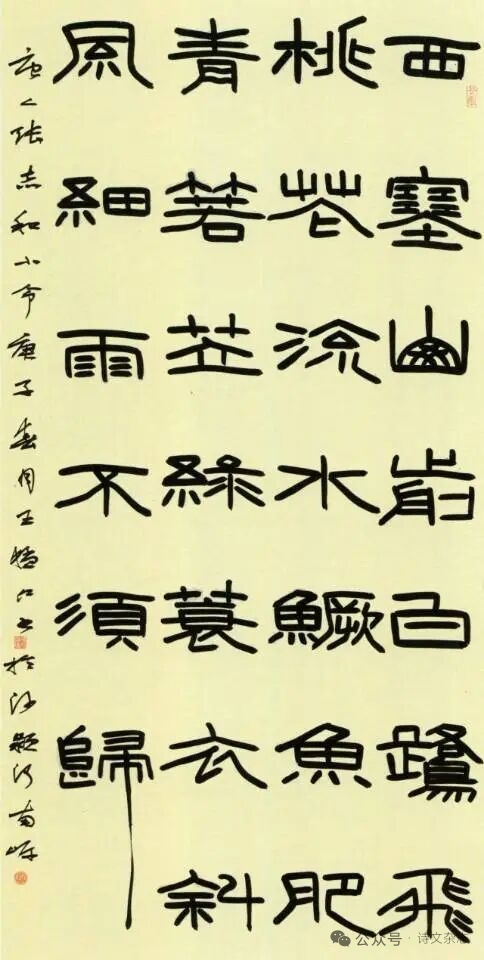 西塞山前白鷺飛
桃花流水鱖魚肥
青箬笠綠蓑衣斜
風細雨不須歸
唐人张志和小令庚子春月王书於沙颖河南岸
公众号 · 诗文杂志